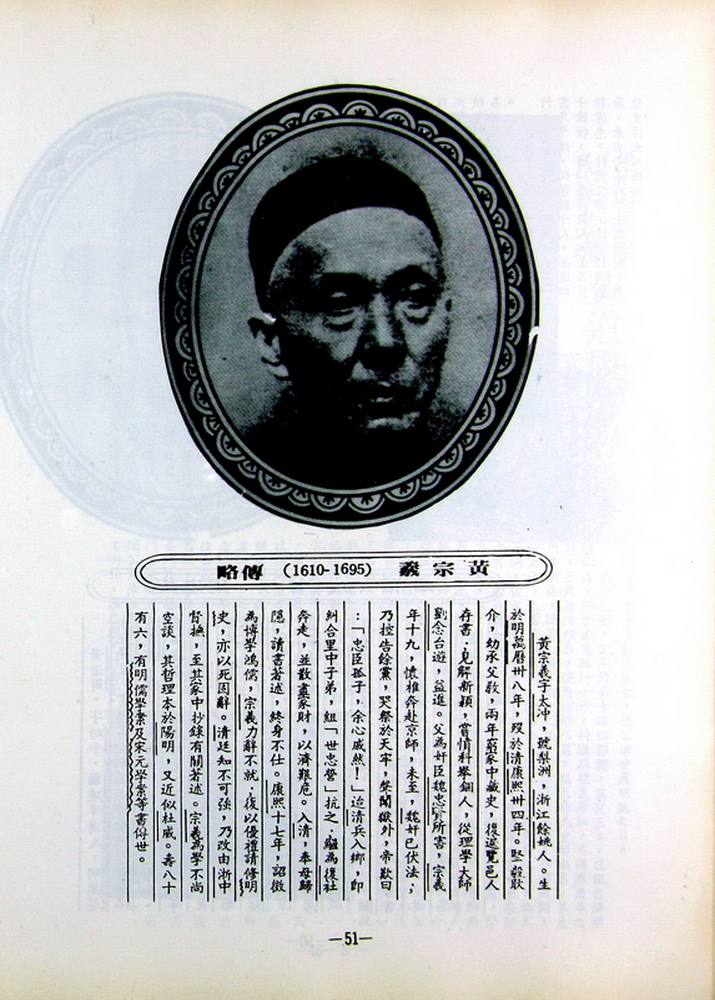 黃宗羲（1610-1695）傳略
黃宗羲字太沖，號梨洲，浙江餘姚人。生
於明萬曆卅八年，歿於清康熙卅四年。堅毅耿
介，幼承父教，兩年窮家中藏史，復遍覽邑人
存書，見解新穎，嘗憤科舉錮人，從理學大師
劉念台遊，益進。父為奸臣魏忠賢所害，宗羲
年十九，懷椎奔赴京師，未至，魏奸已伏法；
乃控告餘黨，哭祭於天牢，聲聞獄外，帝歎曰
：「忠臣孤子，余心戚然！」迨清兵入鄉，即
糾合里中子弟，組「世忠營」抗之，繼為復社
奔走，並散盡家財，以濟艱危。入清，奉母歸
隱，讀書著述，終身不仕。康熙十七年，詔徵
為博學鴻儒，宗羲力辭不就，復以優禮請修明
史，亦以死固辭。清廷知不可強，乃改由浙中
督撫，至其家中抄錄有關著述。宗羲為學不尚
空談，其哲理本於陽明，又近似杜威。壽八十
有六，有明儒學案及宋元學案等書傳世。
—51—